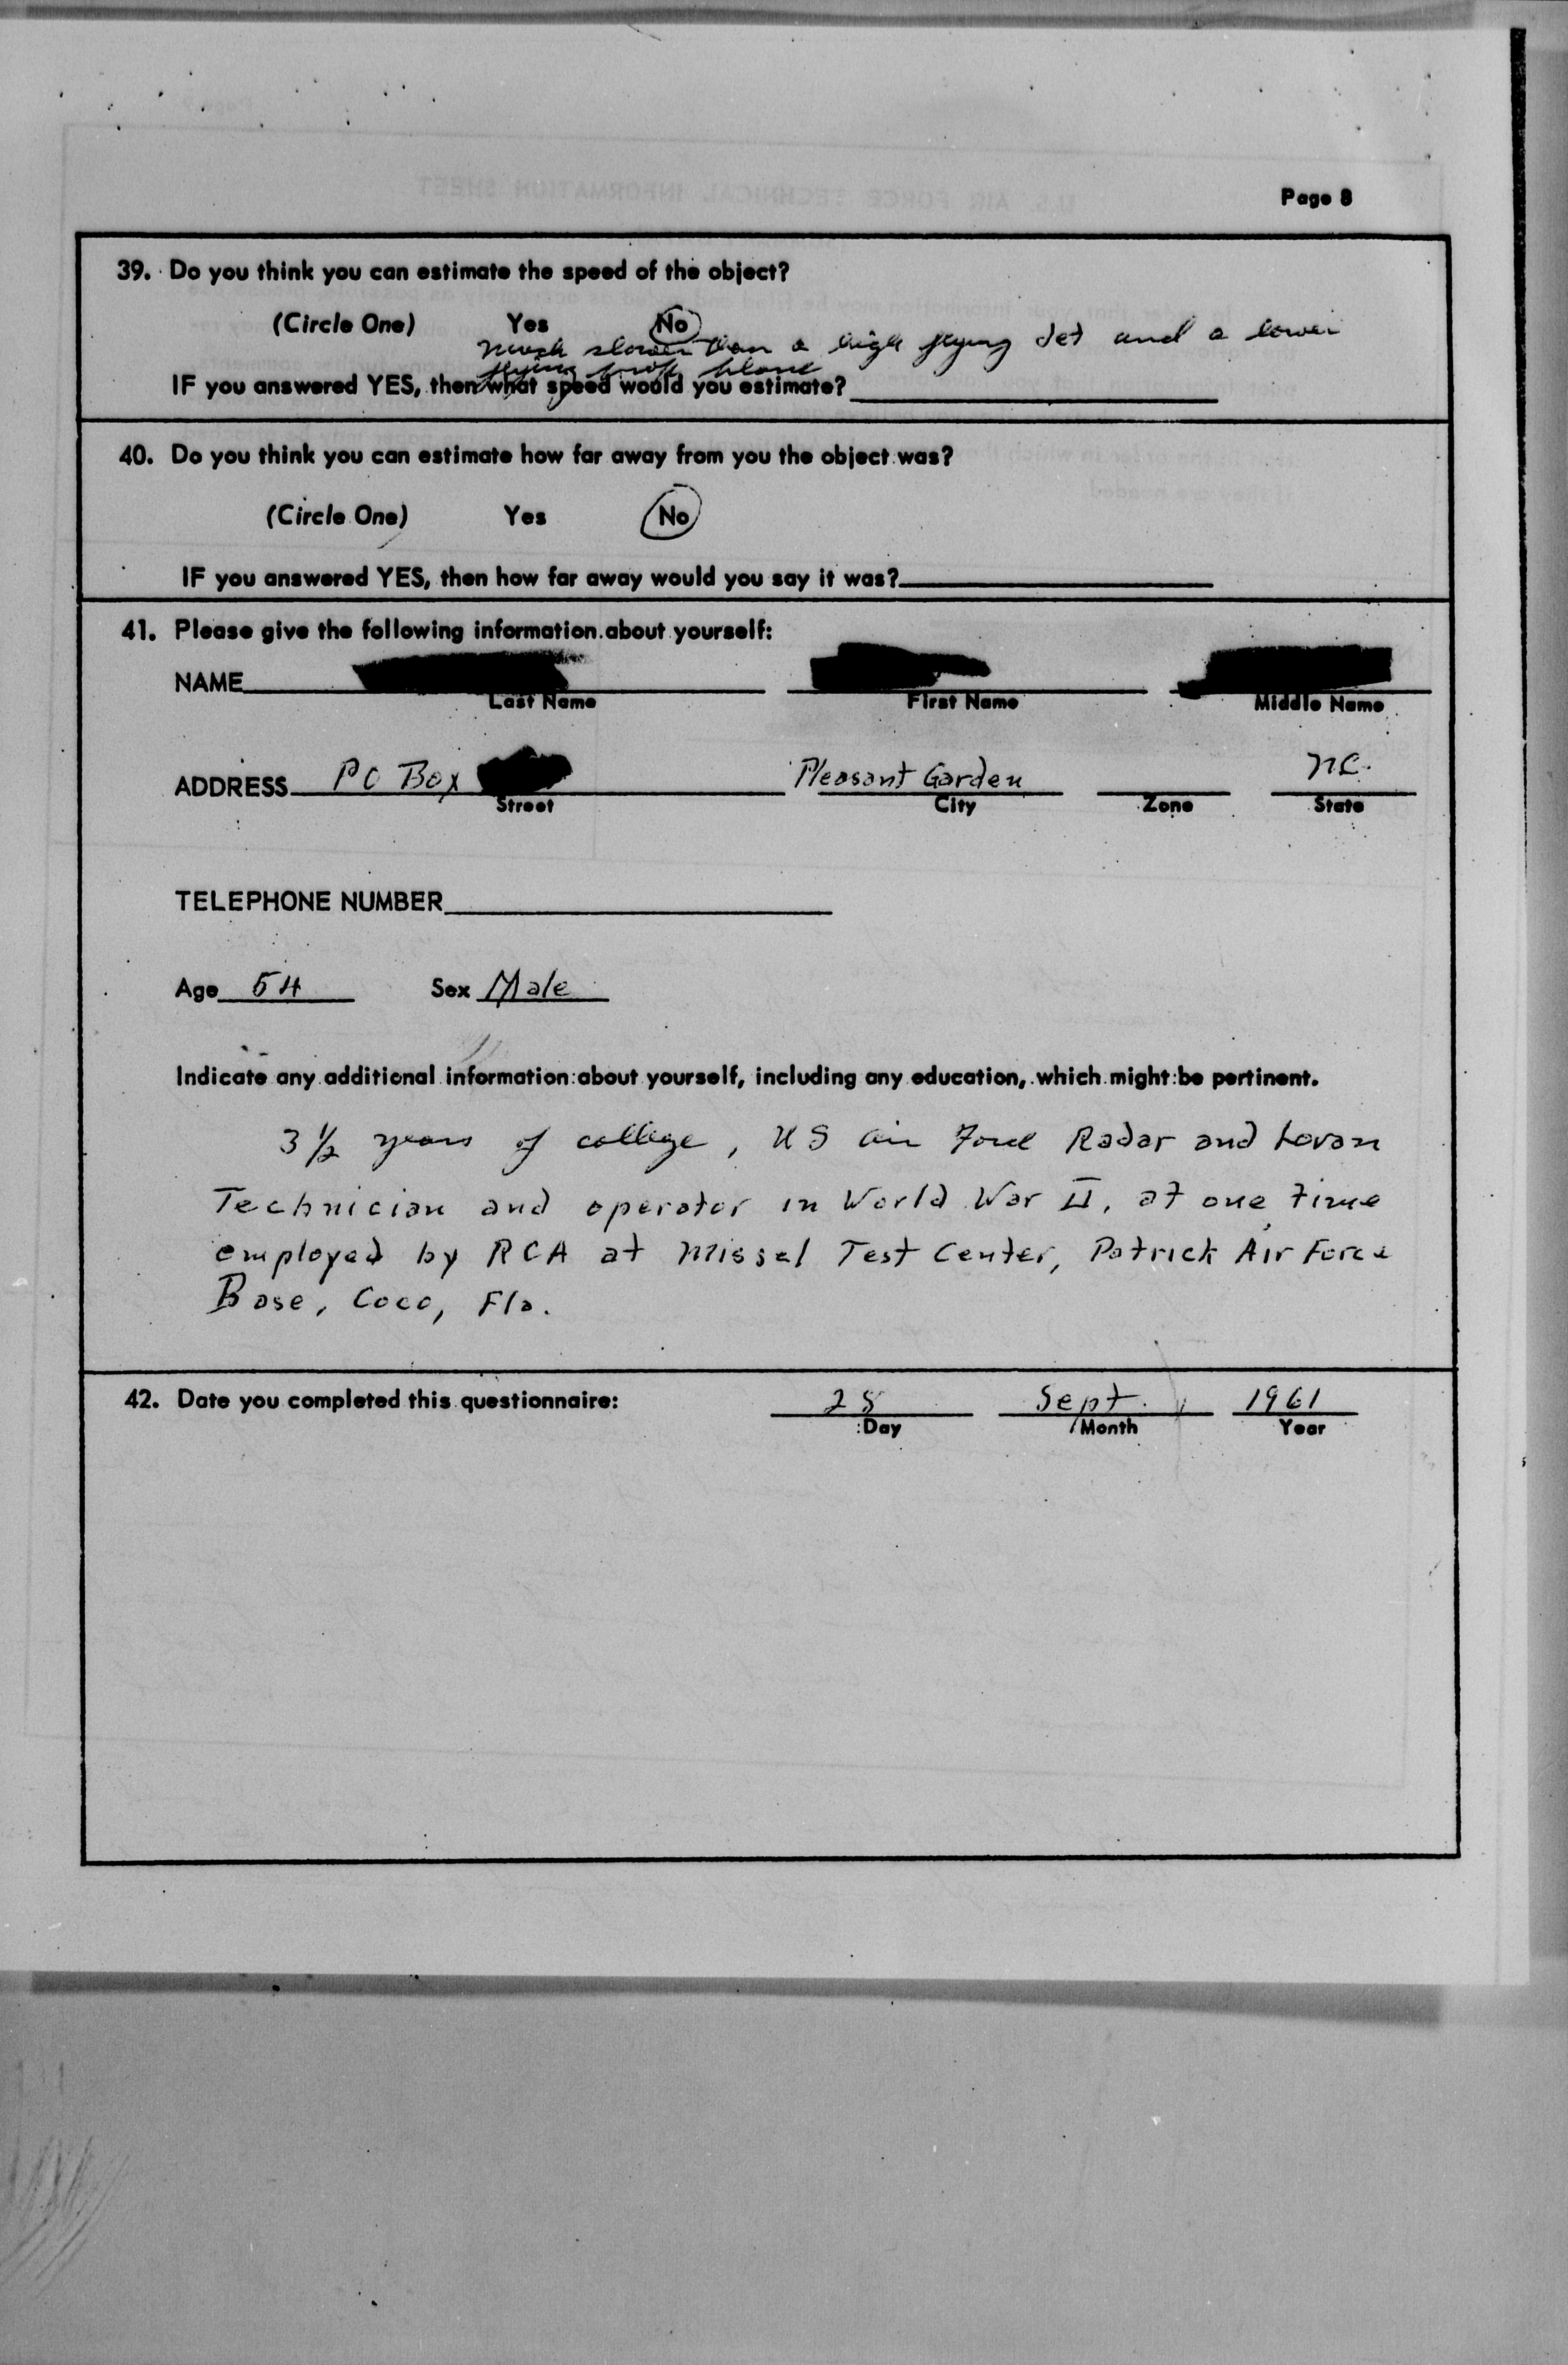 Page 8
39. Do you think you can estimate the speed of the object?
(Circle One) Yes No
much slower than a high flying jet and a lower
flying prop plane
IF you answered YES, then what speed would you estimate?
40. Do you think you can estimate how far away from you the object was?
(Circle One) Yes No
IF you answered YES, then how far away would you say it was?
41. Please give the following information about yourself:
NAME
Last Name First Name Middle Name
ADDRESS PO Box Pleasant Garden NC.
Street City Zone State
TELEPHONE NUMBER
Age 54 Sex Male
Indicate any additional information about yourself, including any education, which might be pertinent.
3 1/2 years of college, US Air Force Radar and Loran
Technician and operator in World War II, at one time
employed by RCA at Missel Test Center, Patrick Air Force
Base, Coco, Fla.
42. Date you completed this questionnaire: 28 Sept. 1961
Day Month Year